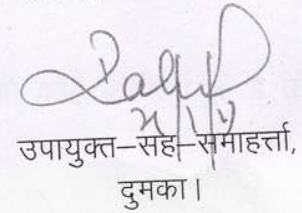 उपायुक्त–सह–समाहर्त्ता,
दुमका।